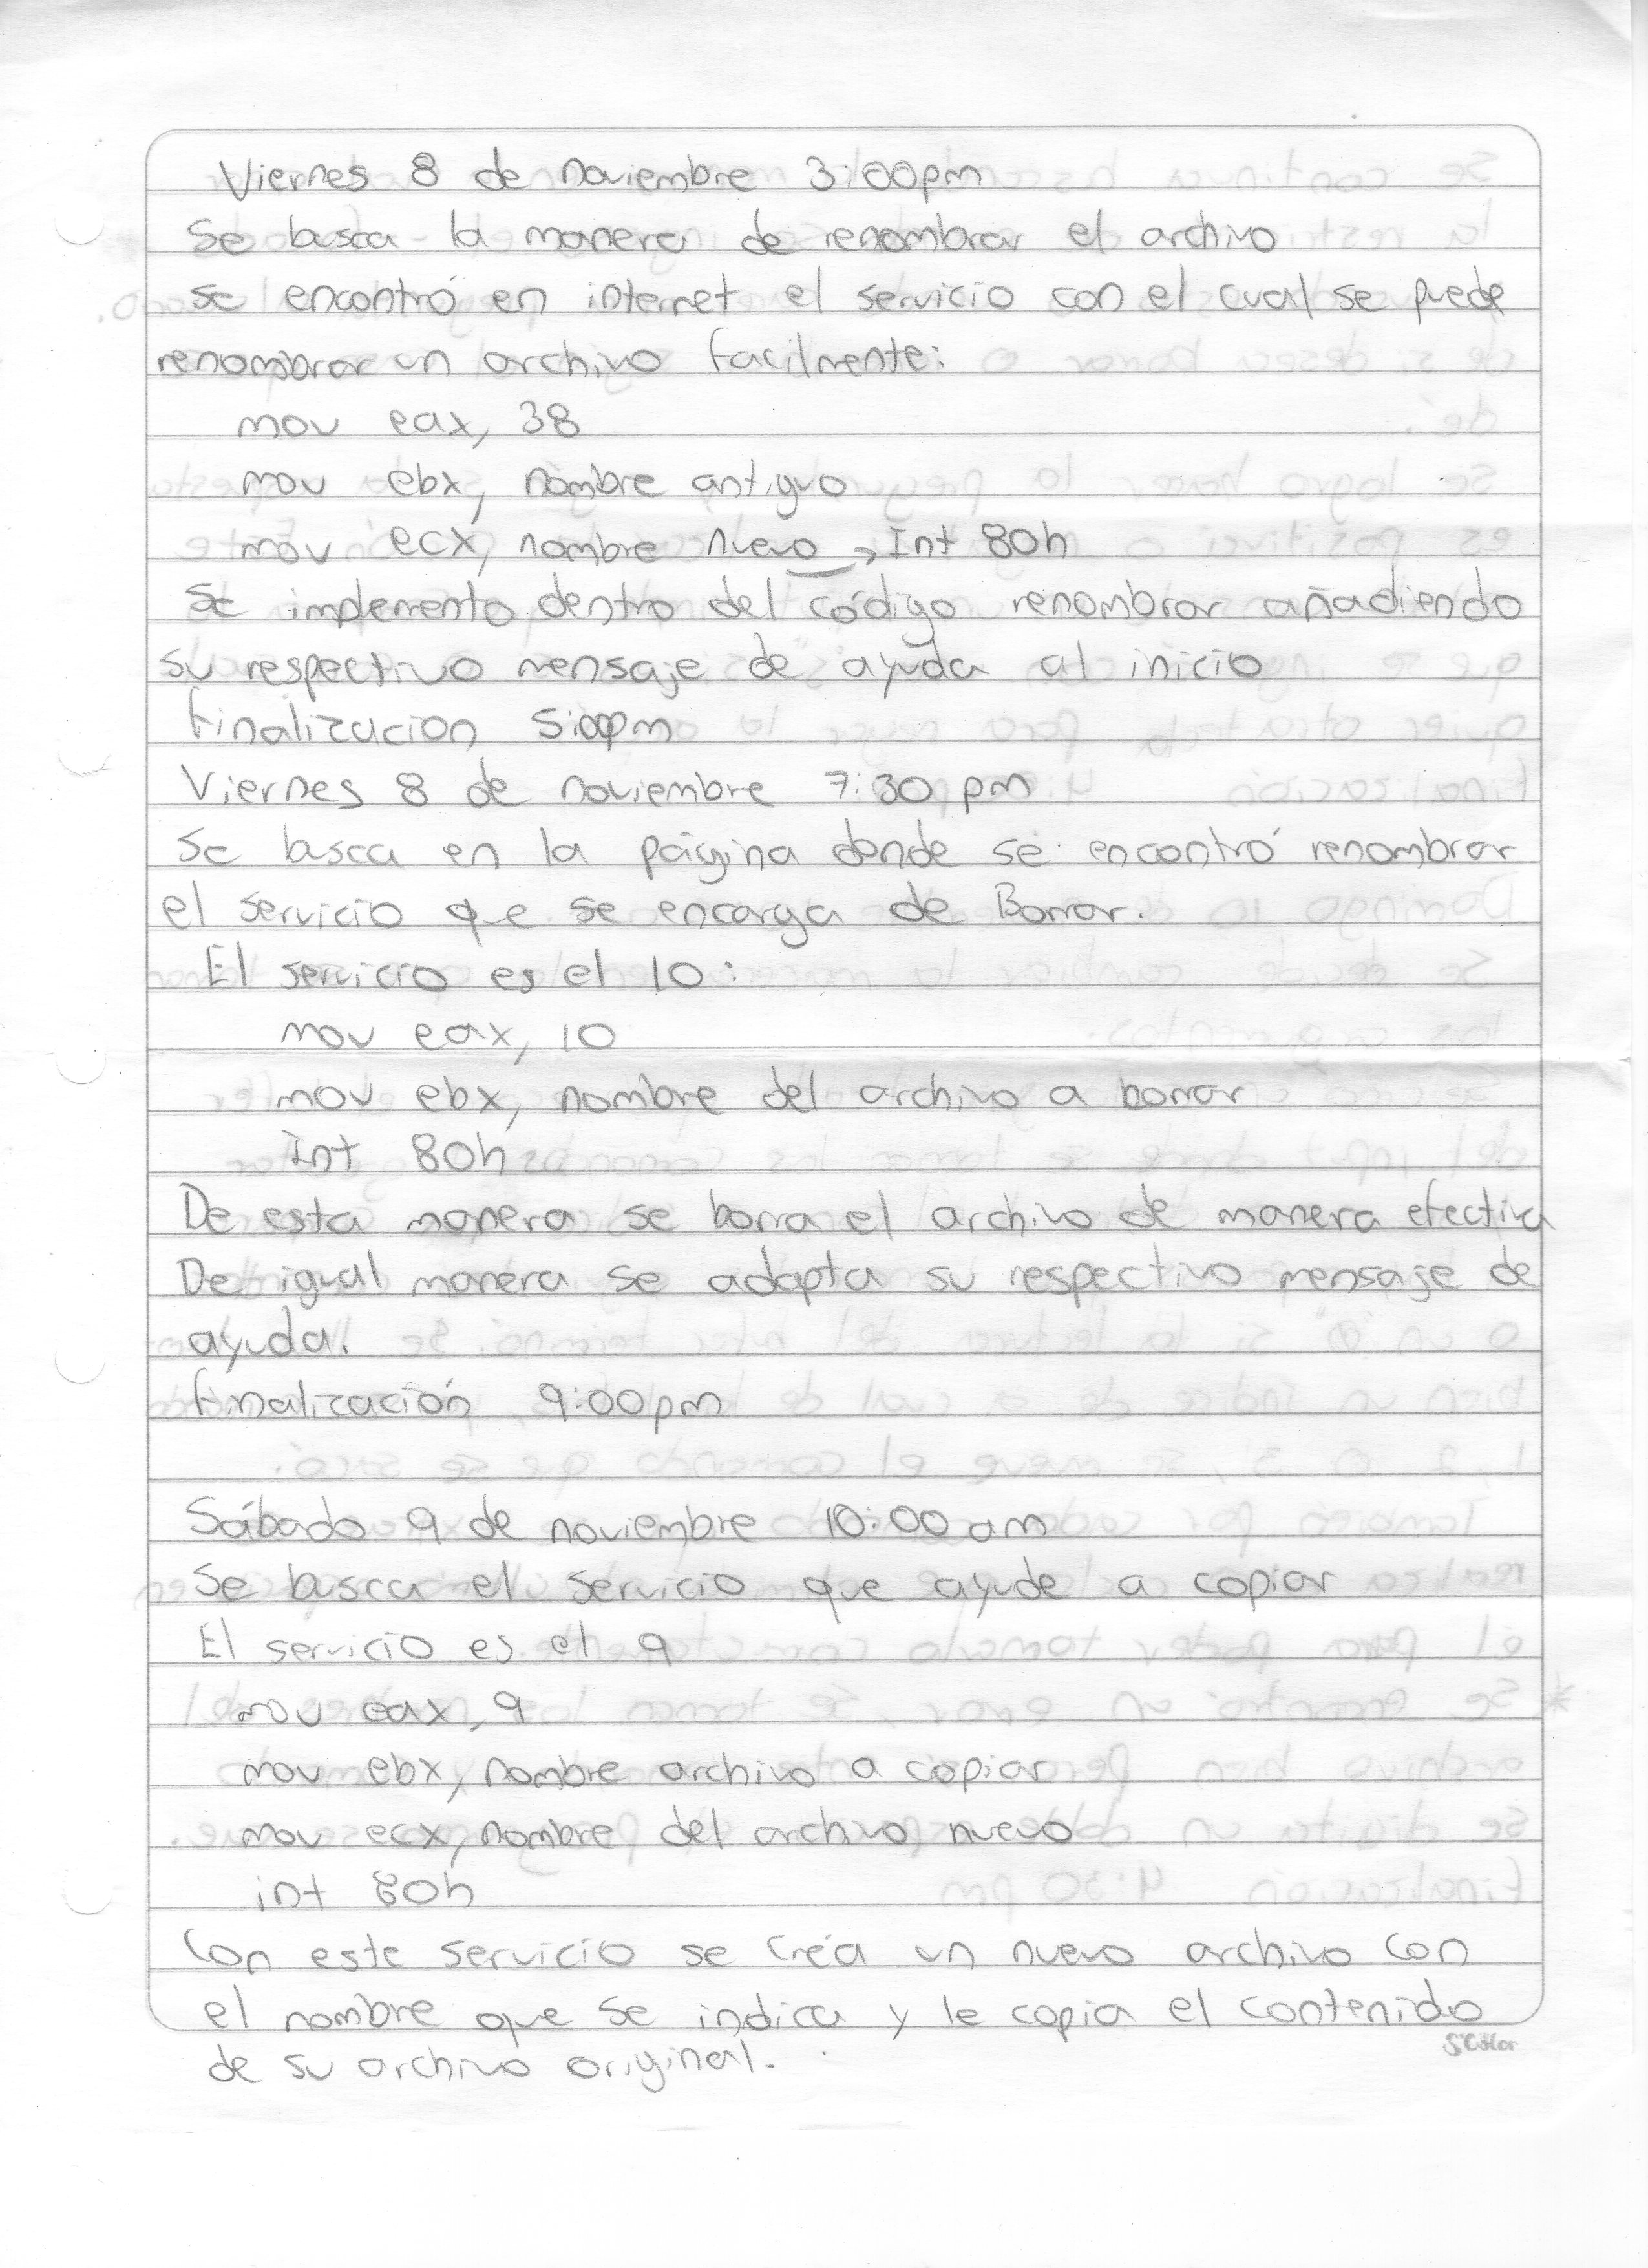 Viernes 8 de noviembre 3:00pm
Se busca la manera de renombrar el archivo
se encontró en internet el servicio con el cual se puede
renombrar un archivo facilmente:
mov eax, 38
mov ebx, nombre antiguo
mov ecx, nombre nuevo → Int 80h
Se implemento dentro del código renombrar añadiendo
su respectivo mensaje de ayuda al inicio
Finalizacion 5:00pm
Viernes 8 de noviembre 7:30 pm
Se busca en la página donde se encontró renombrar
el servicio que se encarga de Borrar.
El servicio es el 10:
mov eax, 10
mov ebx, nombre del archivo a borrar
Int 80h
De esta manera se borra el archivo de manera efectiva
De igual manera se adapta su respectivo mensaje de
ayuda.
Finalización 9:00pm
Sábado 9 de noviembre 10:00 am
Se busca el servicio que ayude a copiar
El servicio es el 9
mov eax, 9
mov ebx, nombre archivo a copiar
mov ecx, nombre del archivo nuevo
int 80h
Con este servicio se crea un nuevo archivo con
el nombre que se indica y le copia el contenido
de su archivo original.